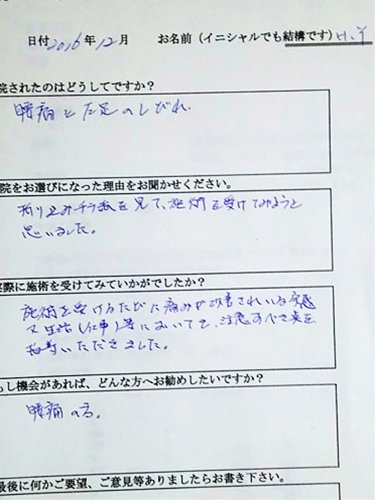 日付 2016年12月 お名前（イニシャルでも結構です） H.Y
院されたのはどうしてですか？
腰痛と左足のしびれ.
院をお選びになった理由をお聞かせください。
折り込みチラシを見て、施術を受けてみようと
思いました。
実際に施術を受けてみていかがでしたか？
施術を受けるたびに痛みが改善されている実感
又生活（仕事）等においても、注意すべき点を
いただきました。
もし機会があれば、どんな方へお勧めしたいですか？
腰痛の方。
最後に何かご要望、ご意見等ありましたらお書き下さい。